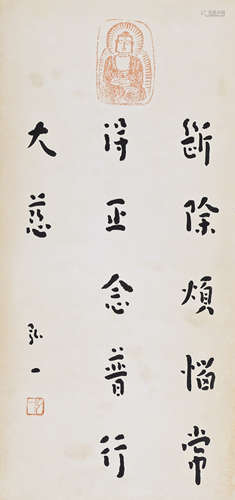 斷除煩惱常
得正念普行
大慈
弘一